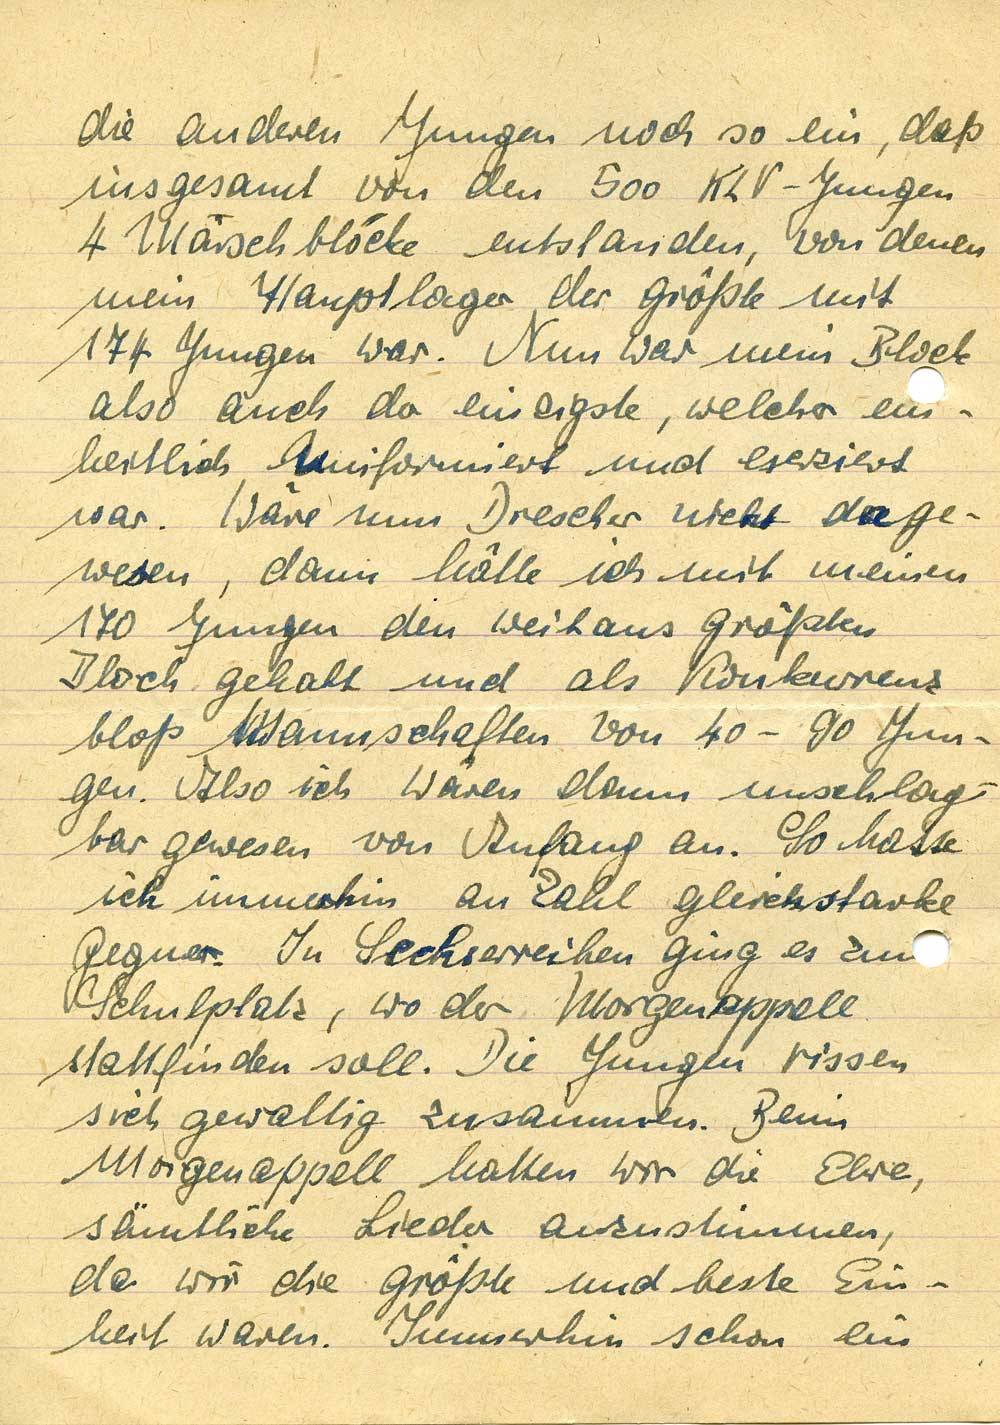 die anderen Jungen noch so ein, daß
insgesamt von den 500 KLV-Jungen
4 Marschblöcke entstanden, von denen
mein Hauptlager der größte mit
174 Jungen war. Nun war mein Block
also auch der einzigste, welcher ein-
heitlich uniformiert und exerziert
war. Wäre nun Drescher nicht dage-
wesen, dann hätte ich mit meinen
170 Jungen den weitaus größten
Block gehabt und als Konkurrenz
bloß Mannschaften von 40 - 90 Jun-
gen. Also ich wären dann unschlag-
bar gewesen von Anfang an. So hatte
ich immerhin an Zahl gleichstarke
Gegner. In Sechserreihen ging es zum
Schulplatz, wo der Morgenappell
stattfinden soll. Die Jungen rissen
sich gewaltig zusammen. Beim
Morgenappell hatten wir die Ehre,
sämtliche Lieder anzustimmen,
da wir die größte und beste Ein-
heit waren. Immerhin schon ein